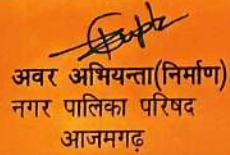 अवर अभियन्ता(निर्माण)
नगर पालिका परिषद
आजमगढ़